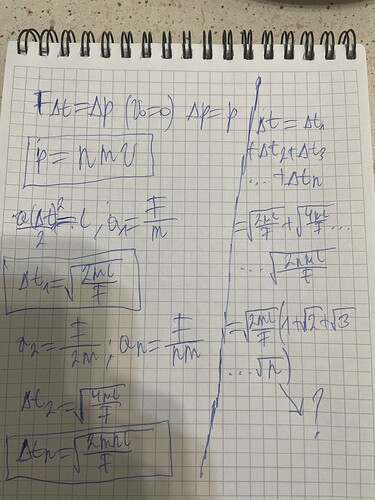 FΔt = Δp (v₀=0) Δp = p
p = nmv
a(Δt)²/2 = l ; a₁ = F/m
Δt₁ = √(2ml/F)
a₂ = F/2m ; aₙ = F/nm
Δt₂ = √(4ml/F)
Δtₙ = √(2mnl/F)
Δt = Δt₁
+ Δt₂ + Δt₃
... + Δtₙ
= √(2ml/F) + √(4ml/F) ...
... √(2nml/F)
= √(2ml/F) (1+√2+√3
... √n)
?